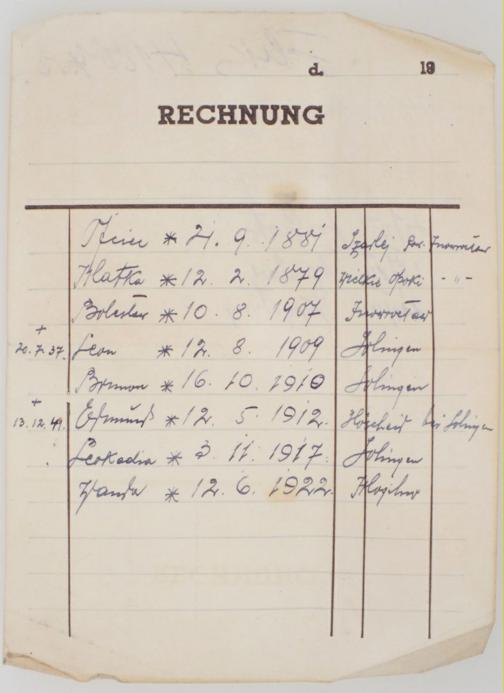 d. 19
RECHNUNG
* 21. 9. 1881 Szarlej Inowrocław
Matka * 12. 2. 1879 Wielkie Opoki - " -
Bolesław * 10. 8. 1907 Inowrocław
+ 20.7.37. Leon * 12. 8. 1909 Solingen
Brunon * 16. 10. 1910 Solingen
+ 13.12.41. Edmund * 12. 5. 1912. Höhscheid bei Solingen
Leokadia * 3. 11. 1917. Solingen
Wanda * 12. 6. 1922